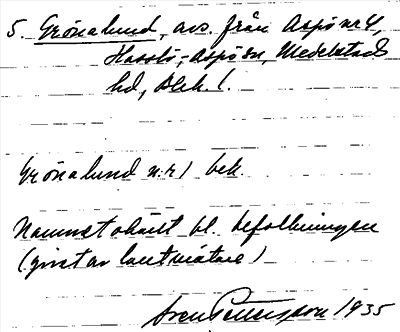 5. Grönalund, avs. från Aspö nr 4,
Hasslö-Aspö sn, Medelstads
hd, Blek. l.
Grönalund nr 1 bek.
Namnet okänt bl. befolkningen
(givet av lantmätare)
Sven Pettersson 1935